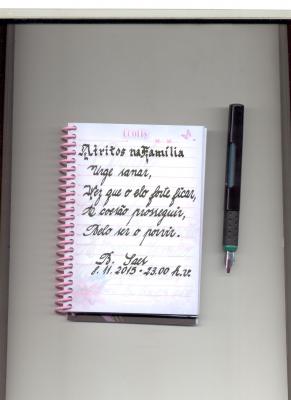 Atritos na Família
Urge sanar,
Vez que o elo forte ficar,
A coesão prosseguir,
Belo ser o porvir.
B. Saes
8.11.2015 - 23.00 h.v.